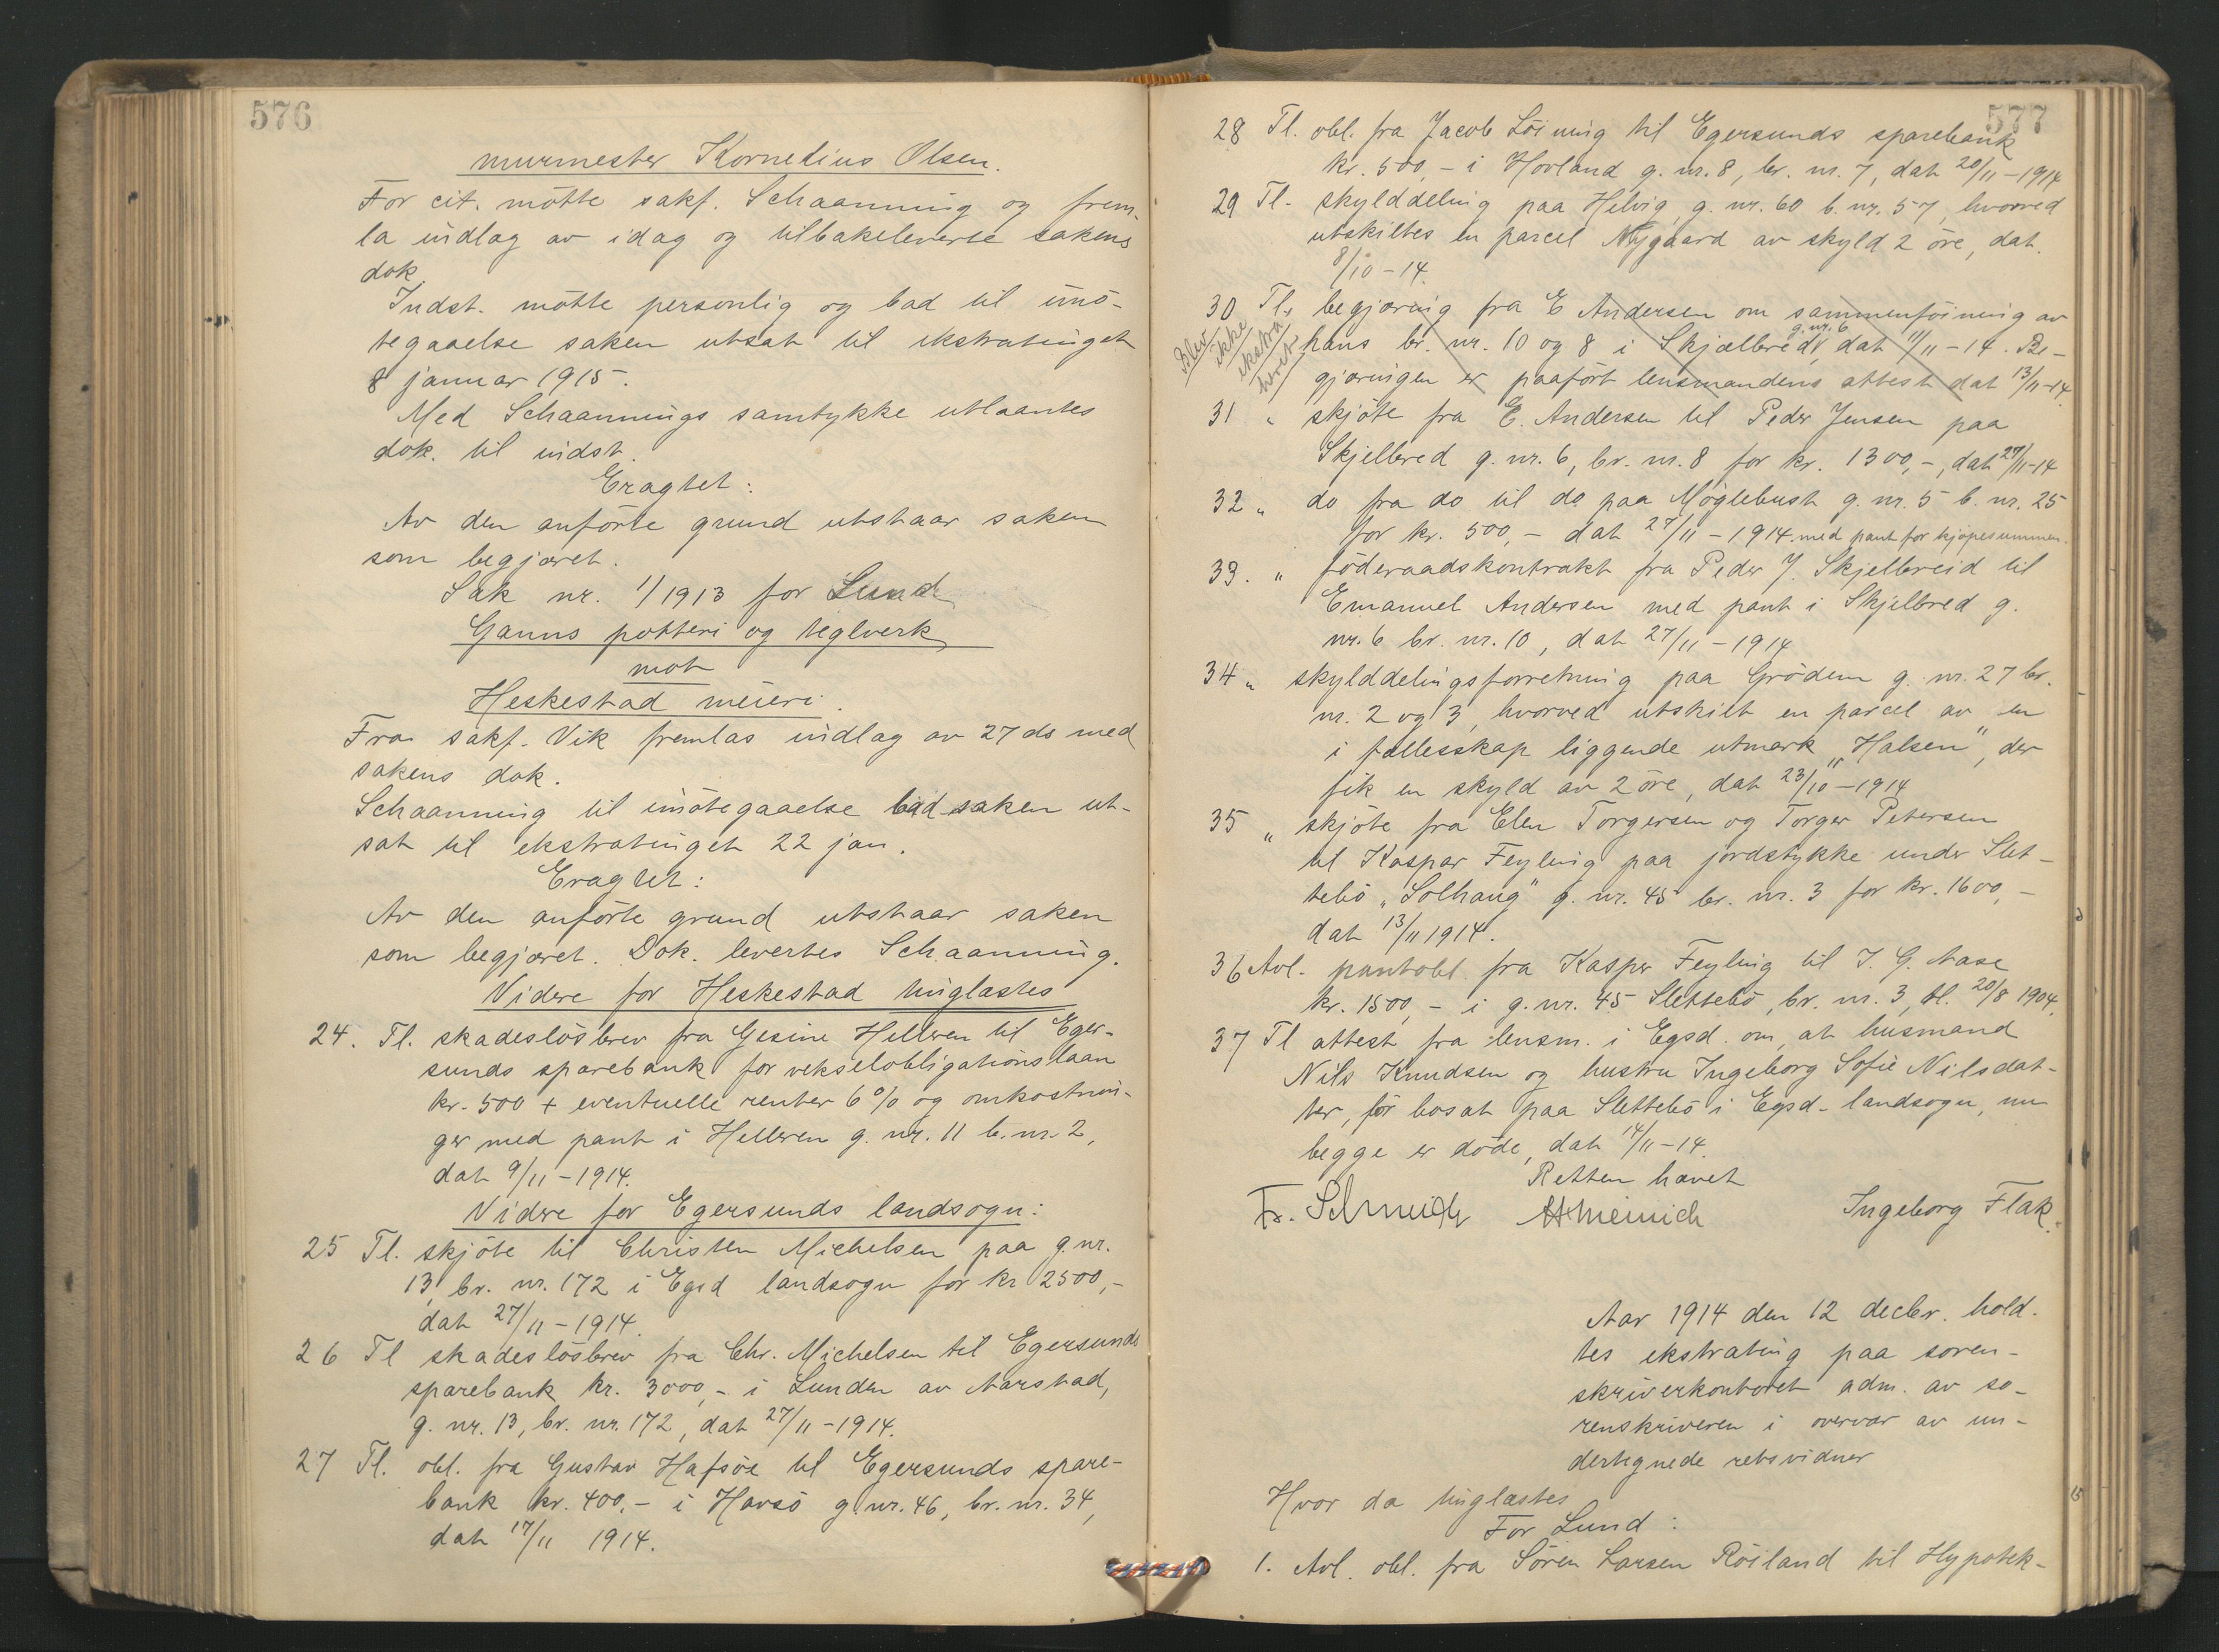 576
murmester Kornelius Olsen.
For cit. mötte sakf. Schaanning og frem-
la indlag av idag og tilbakeleverte sakens
dok.
Indst. mötte personlig og bad til imö-
tegaaelse saken utsat til ekstratinget
8 januar 1915.
Med Schaannings samtykke utlaantes
dok. til indst.
Eragtet:
Av den anförte grund utstaar saken
som begjæret.
Sak nr. 1/1913 for Lund
Ganns potteri og teglverk
mot
Heskestad meieri.
Fra sakf. Vik fremlas indlag av 27 ds med
sakens dok.
Schaanning til imötegaaelse bad saken ut-
sat til ekstratinget 22 jan.
Eragtet:
Av den anförte grund utstaar saken
som begjæret. Dok. levertes Schaanning.
Videre for Heskestad tinglæstes
24. Tl. skadeslösbrev fra Gesine Helleren til Eger-
sunds sparebank for vekselobligationslaan
kr. 500 + eventuelle renter 6 % og omkostnin-
ger med pant i Helleren g. nr. 11 b. nr. 2,
dat 9/11 - 1914.
Videre for Egersunds landsogn:
25 Tl. skjöte til Christen Michelsen paa g. nr.
13, br. nr. 172 i Egsd landsogn for kr 2500,-
dat 27/11 - 1914.
26 Tl skadeslösbrev fra Chr. Michelsen til Egersunds
sparebank kr. 3000,- i Lunden av Aarstad,
g. nr. 13, br. nr. 172, dat 27/11 - 1914.
27 Tl. obl. fra Gustav Hafsöe til Egersunds spare-
bank kr. 400,- i Havsö g. nr. 46, br. nr. 34,
dat 17/11 1914.
577
28 Tl. obl. fra Jacob Löining til Egersunds sparebank
kr. 500,- i Hovland g. nr. 8, br. nr. 7, dat 20/11 - 1914
29 Tl. skylddeling paa Helvig, g. nr. 60 b. nr. 57, hvorved
utskiltes en parcel Nygaard av skyld 2 öre, dat.
8/10 - 14.
30 Tl. begjæring fra E Andersen om sammenföining av
hans br. nr. 10 og 8 i Skjælbred, g. nr. 6 dat 11/11 - 14. Be-
gjæringen er paafört lensmandens attest dat 13/11-14.
Blev ikke ekstra hevet
31 " skjöte fra E. Andersen til Peder Jensen paa
Skjelbred g. nr. 6, br. nr. 8 for kr. 1300,-, dat 27/11-14
32 " do fra do til do paa Möglebust g. nr. 5 b. nr. 25
for kr. 500,- dat 27/11 - 1914. med pant for kjöpesummen.
33. " föderaadskontrakt fra Peder J. Skjelbreid til
Emanuel Andersen med pant i Skjelbred g.
nr. 6 br. nr. 10, dat 27/11 - 1914
34 " skylddelingsforretning paa Grödem g. nr. 27 br.
nr. 2 og 3, hvorved utskilt en parcel av en
i fællesskap liggende utmark „Halsen", der
fik en skyld av 2 öre, dat 23/10 - 1914
35 " skjöte fra Elen Torgersen og Torger Petersen
til Kaspar Feyling paa jordstykke under Slet-
tebö „Solhaug" g. nr. 45 br. nr. 3 for kr. 1600,-
dat 13/11 1914.
36 Avl. pantobl. fra Kasper Feyling til J. G. Aase
kr. 1500,- i g. nr. 45 Slettebö, br. nr. 3, tl. 20/8 1904.
37 Tl attest fra lensm. i Egsd. om, at husmand
Nils Knudsen og hustru Ingeborg Sofie Nilsdat-
ter, för bosat paa Slettebö i Egsd-landsogn, nu
begge er döde, dat 14/11 - 14.
Retten hævet
Fr. Schmidt Ingeborg Flak.
Aar 1914 den 12 decbr. hold-
tes ekstrating paa soren-
skriverkontoret adm. av so-
renskriveren i overvær av un-
dertegnede retsvidner
Hvor da tinglæstes
For Lund:
1. Avl. obl. fra Sören Larsen Röiland til Hypotek-